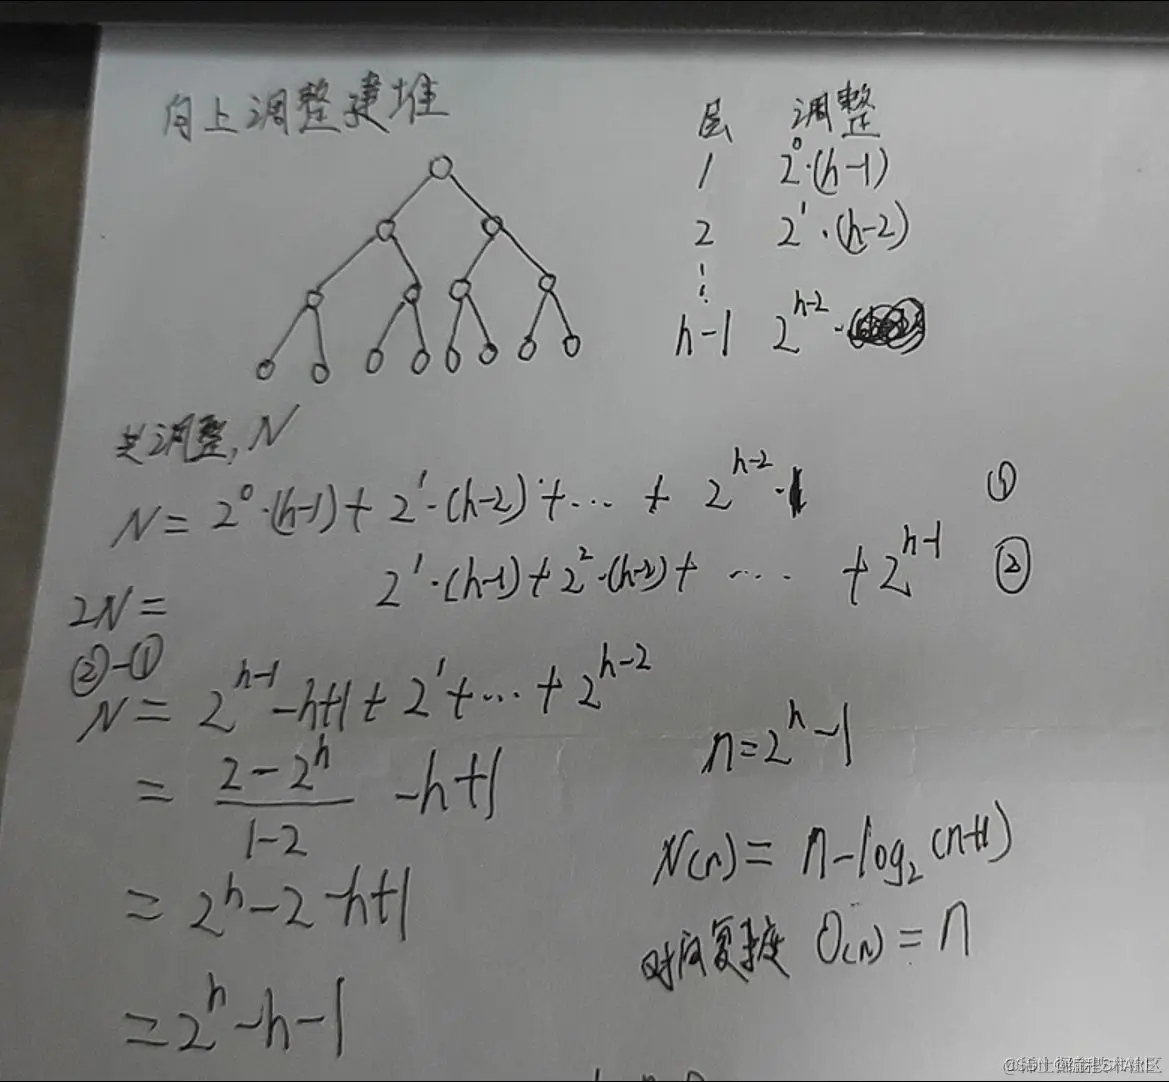 向上调整建堆
层 调整
1 2^0·(h-1)
2 2^1·(h-2)
⋮
h-1 2^{h-2}·
共调整,N
N= 2^0·(h-1)+ 2^1·(h-2)+… + 2^{h-2}·1 ①
2N= 2^1·(h-1)+2^2·(h-2)+ … +2^{h-1} ②
②-①
N= 2^{h-1}-h+1+2^1+…+2^{h-2}
= \frac{2-2^h}{1-2} -h+1
= 2^h-2-h+1
=2^h-h-1
n=2^h-1
N(n)= n-log_2(n+1)
时间复杂度 O(n)=n